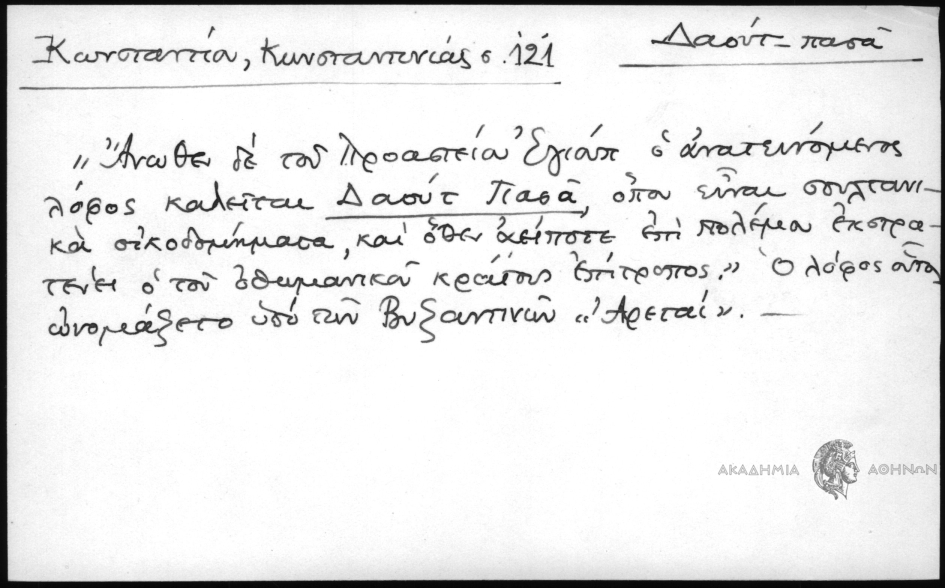 Κωνσταντίου, Κωνσταντινιάς σ. 121
Δαούτ-πασᾶ
„Ἄνωθεν δὲ τοῦ Προαστείου Ἐγιὰπ ὁ ἀνατεινόμενος
λόφος καλεῖται Δαοὺτ Πασᾶ, ὅπου εἶναι σουλτανι-
κὰ οἰκοδομήματα, καὶ ὅθεν ἀείποτε ἐπὶ πολέμου ἐκστρα-
τεύει ὁ τοῦ ὀθωμανικοῦ κράτους ἐπίτροπος.” Ὁ λόφος οὗτος
ὠνομάζετο ὑπὸ τῶν Βυζαντινῶν «Ἀρεταί». —
ΑΚΑΔΗΜΙΑ ΑΘΗΝΩΝ